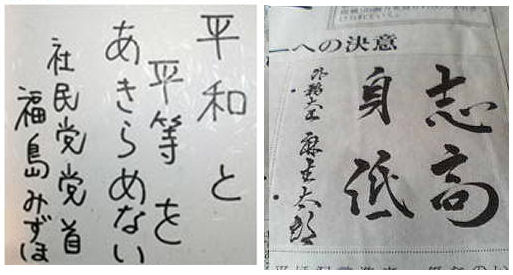 平和と
平等を
あきらめない
社民党党首
福島みずほ
への決意
志高
身低
外務大臣 麻生太郎